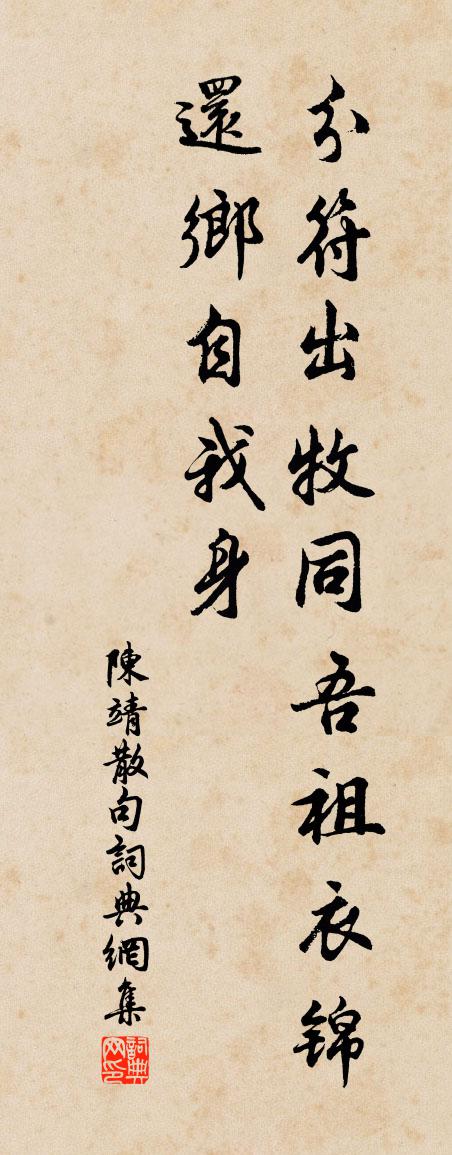 分符出牧同吾祖衣錦
還鄉自我身
陳靖散句詞典網集
詞典
网印